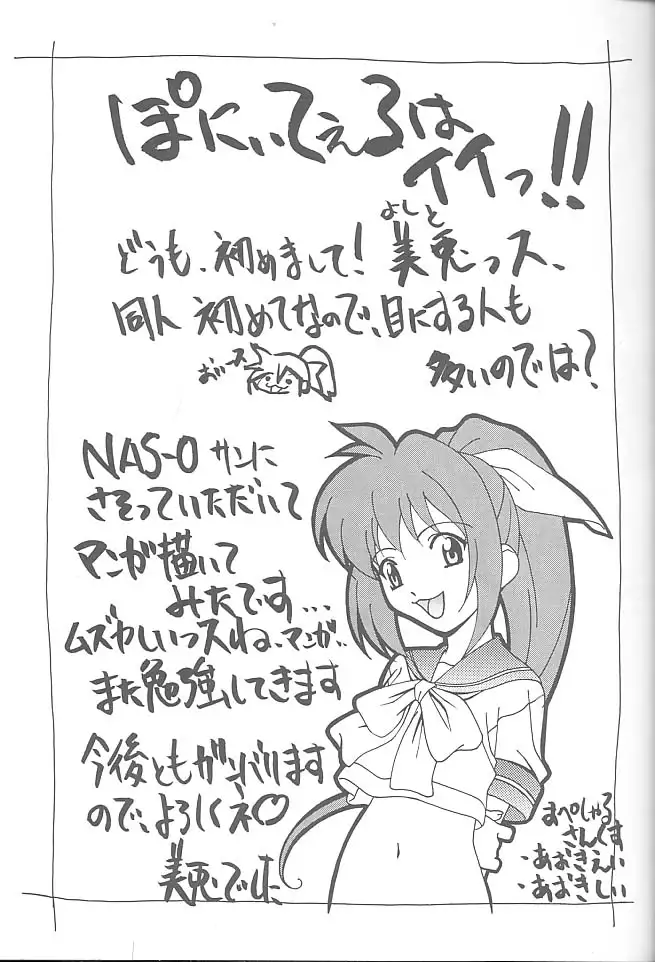 ぽにぃてぇるは
イイっ!!
どうも、初めまして！美兎っス、
よしと
同人初めてなので、目にする人も
多いのでは？
おいース
NAS-O サンに
さそっていただいて
マンガ描いて
みたです...
ムズかしいっスね、マンガ..
また勉強してきます
今後ともガンバリます
ので、よろしくネ♡
美兎でした
すぺしゃる
さんくす
・あおきえい
・あおきしい